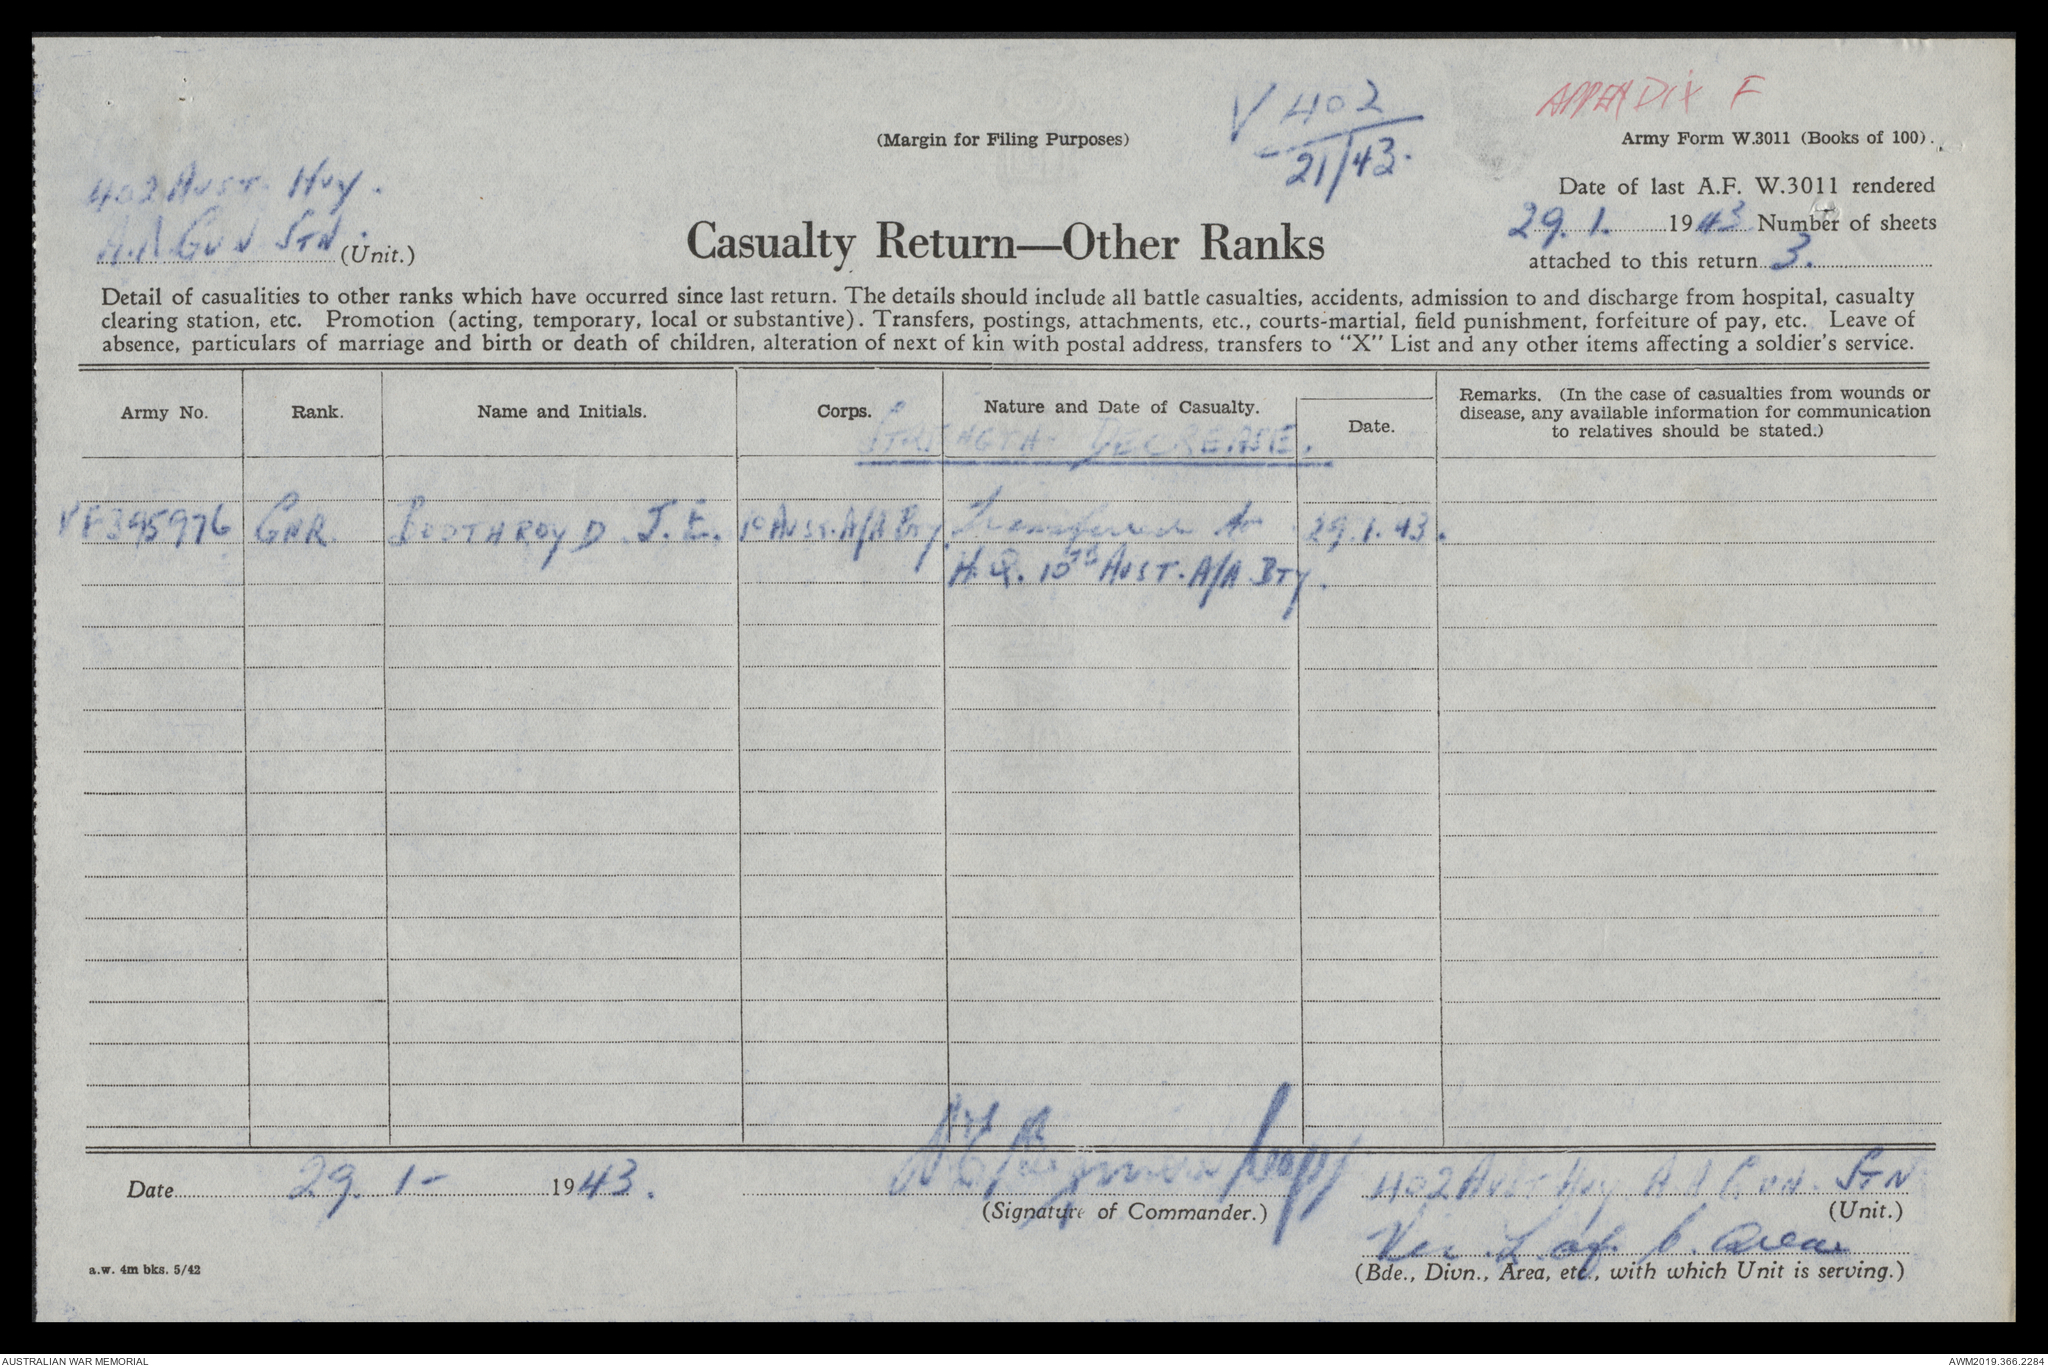 APPENDIX F
V 402
21/43.
(Margin for Filing Purposes)
Army Form W.3011 (Books of 100).
402 AUST. HVY.
A.A GUN STN.
(Unit.)
Casualty Return—Other Ranks
Date of last A.F. W.3011 rendered
29. 1. 1943 Number of sheets
attached to this return 3.
Detail of casualities to other ranks which have occurred since last return. The details should include all battle casualties, accidents, admission to and discharge from hospital, casualty
clearing station, etc. Promotion (acting, temporary, local or substantive). Transfers, postings, attachments, etc., courts-martial, field punishment, forfeiture of pay, etc. Leave of
absence, particulars of marriage and birth or death of children, alteration of next of kin with postal address, transfers to "X" List and any other items affecting a soldier's service.
Army No. Rank. Name and Initials. Corps. Nature and Date of Casualty. Date. Remarks. (In the case of casualties from wounds or
disease, any available information for communication
to relatives should be stated.)
STRENGTH DECREASE.
VF395976 GNR. BOOTHROYD J.E. 10 AUST. A/A BTY. Transferred to 29.1.43.
H.Q. 10th AUST. A/A BTY.
Date 29. 1- 1943.
(Signature of Commander.)
402 AUST HVY A A GUN. STN
(Unit.)
Vic L of C. Area
(Bde., Divn., Area, etc., with which Unit is serving.)
a.w. 4m bks. 5/42
AUSTRALIAN WAR MEMORIAL
AWM2019.366.2284